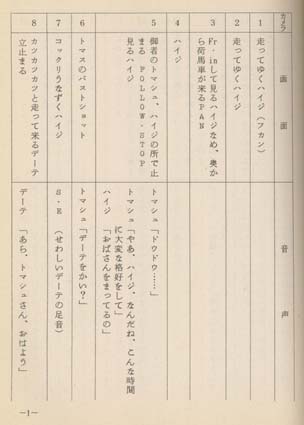 カメラ
画面
音声
1
走ってゆくハイジ（フカン）
2
走ってゆくハイジ
3
Fr・inして見るハイジなめ、奥か
ら荷馬車が来るPAN
4
ハイジ
5
御者のトマシュ、ハイジの所で止
まる FOLLOW・STOP
見るハイジ
トマシュ「ドウドウ……」
トマシュ「やあ、ハイジ、なんだね、こんな時間
に大変な格好をして」
ハイジ「おばさんをまってるの」
6
トマスのバストショット
トマシュ「デーテをかい？」
7
コックリうなずくハイジ
S・E（せわしいデーテの足音）
8
カツカツカツと走って来るデーテ
立止まる
デーテ「あら、トマシュさん、おはよう」
—1—